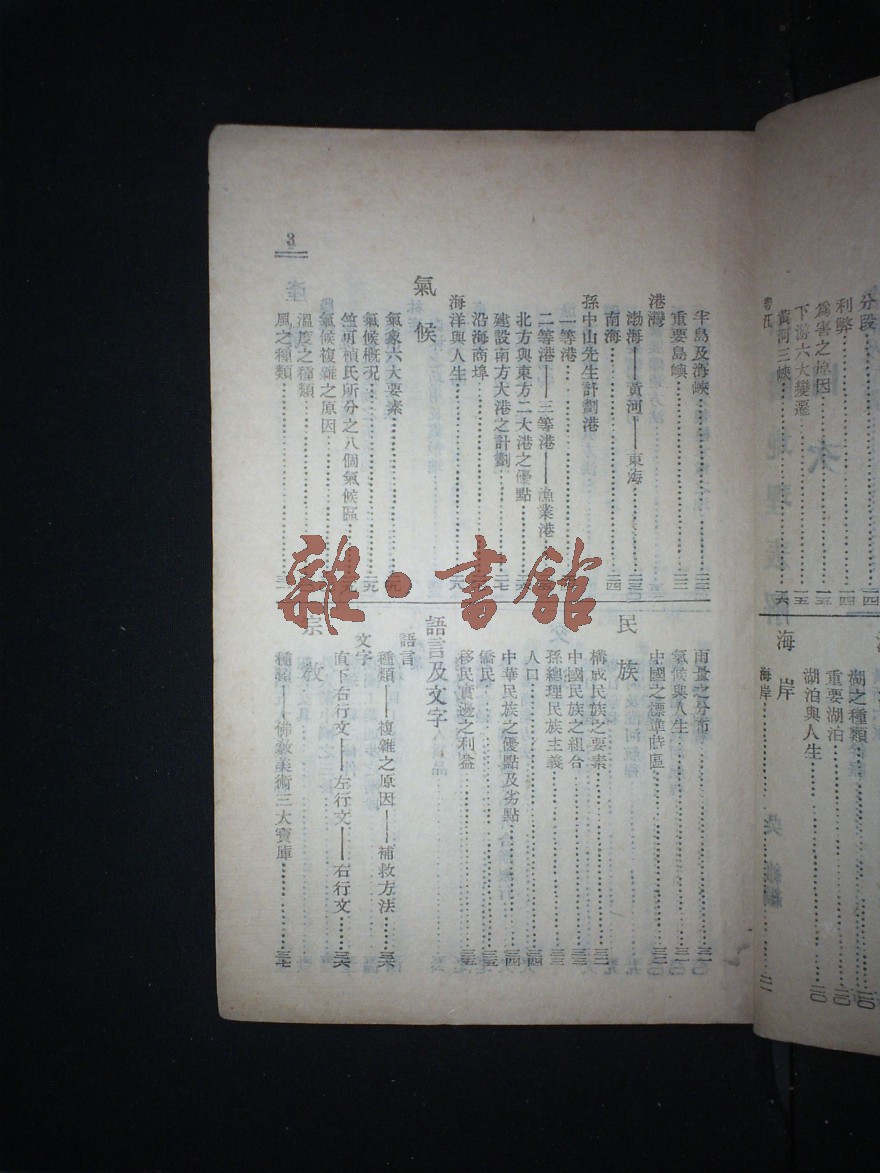 分段
利弊
爲害之原因
下游六大變遷
黃河三峽
湖之種類
重要湖泊
湖泊與人生
海岸
海岸
3
半島及海峽
重要島嶼
港灣
渤海——黃河——東海
南海
孫中山先生計劃港
一等港
二等港——三等港——漁業港
北方與東方二大港之優點
建設南方大港之計劃
沿海商埠
海洋與人生
氣候
氣象六大要素
氣候概況
竺可楨氏所分之八個氣候區
氣候複雜之原因
溫度之種類
風之種類
雨量之分布
氣候與人生
中國之標準時區
民族
構成民族之要素
中國民族之組合
孫總理民族主義
人口
中華民族之優點及劣點
僑民
移民實邊之利益
語言及文字
語言
種類——複雜之原因——補救方法
文字
直下右行文——左行文——右行文
宗教
種類——佛教美術三大寶庫
雜·書館